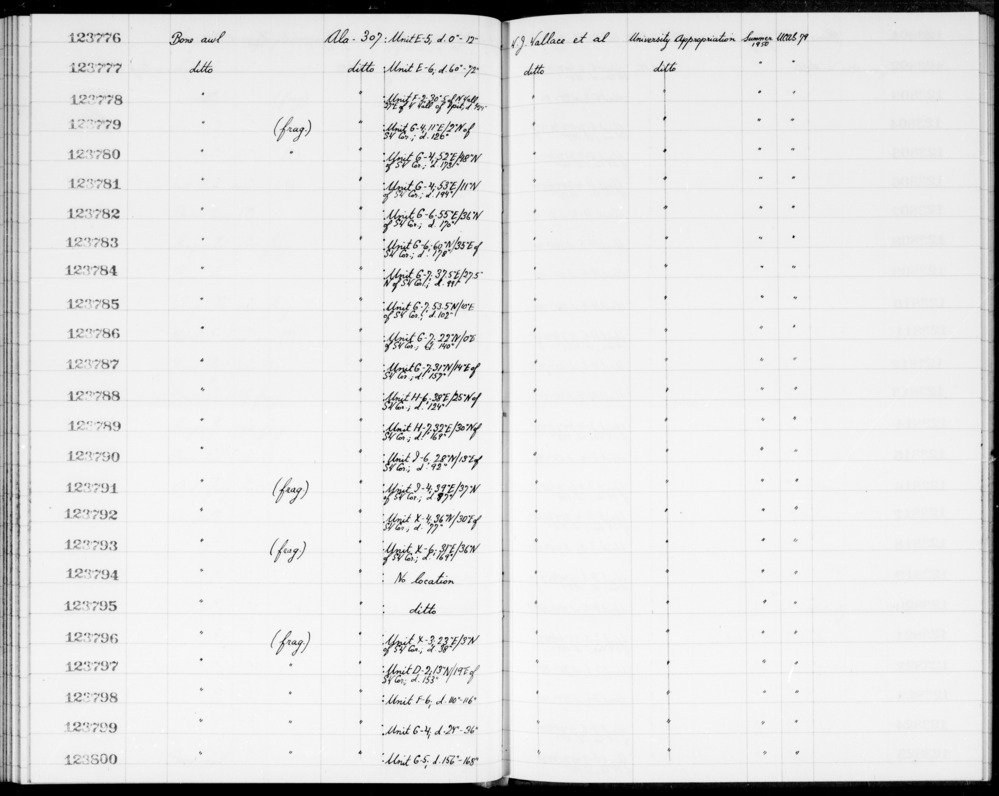 123776 Bone awl Ala-307: Unit E-5, d. 0"-12" W.J. Wallace et al University Appropriation Summer 1950
123777 ditto ditto : Unit E-6, d. 60"-72" ditto ditto " "
123778 " " " " " "
123779 " (frag.) " : Unit G-4, 11"E/2"N of " " " "
SW Cor.; d. 126"
123780 " " " : Unit G-4, 52"E/48"N " " " "
of SW Cor.; d.
123781 " " : Unit G-4, 53"E/11"N " " " "
of SW Cor.; d. 144"
123782 " " : Unit G-6, 55"E/36"N " " " "
of SW Cor.; d. 170"
123783 " " : Unit G-6, 60"N/35"E of " " " "
SW Cor.; d. 178"
123784 " " : Unit G-7, 37.5"E/27.5" " " " "
N of SW Cor.; d.
123785 " " : Unit G-7, 53.5"N/10"E " " " "
of SW Cor.; d. 102"
123786 " " : Unit G-7, 22"N/0"E " " " "
of SW Cor.; d. 140"
123787 " " : Unit G-7, 31"N/14"E of " " " "
SW Cor.; d. 157"
123788 " " : Unit H-6, 38"E/25"N of " " " "
SW Cor.; d. 124"
123789 " " : Unit H-7, 32"E/30"N of " " " "
SW Cor.; d. 169"
123790 " " : Unit I-6, 28"N/13"E of " " " "
SW Cor.; d. 92"
123791 " (frag.) " : Unit I-4, 39"E/37"N " " " "
of SW Cor.; d.
123792 " " : Unit X-4, 36"N/30"E of " " " "
SW Cor.; d. 77"
123793 " (frag.) " : Unit X-6, 31"E/36"N " " " "
of SW Cor.; d. 169"
123794 " " : No location " " " "
123795 " " : ditto " " " "
123796 " (frag.) " : Unit X-3, 23"E/3"N " " " "
of SW Cor., d. 38"
123797 " " " : Unit D-2, 13"N/19"E of " " " "
SW Cor.; d. 153"
123798 " " " : Unit F-6, d. 110"-116" " " " "
123799 " " " : Unit G-4, d. 24"-36" " " " "
123800 " " " : Unit G-5, d. 156"-168" " " " "